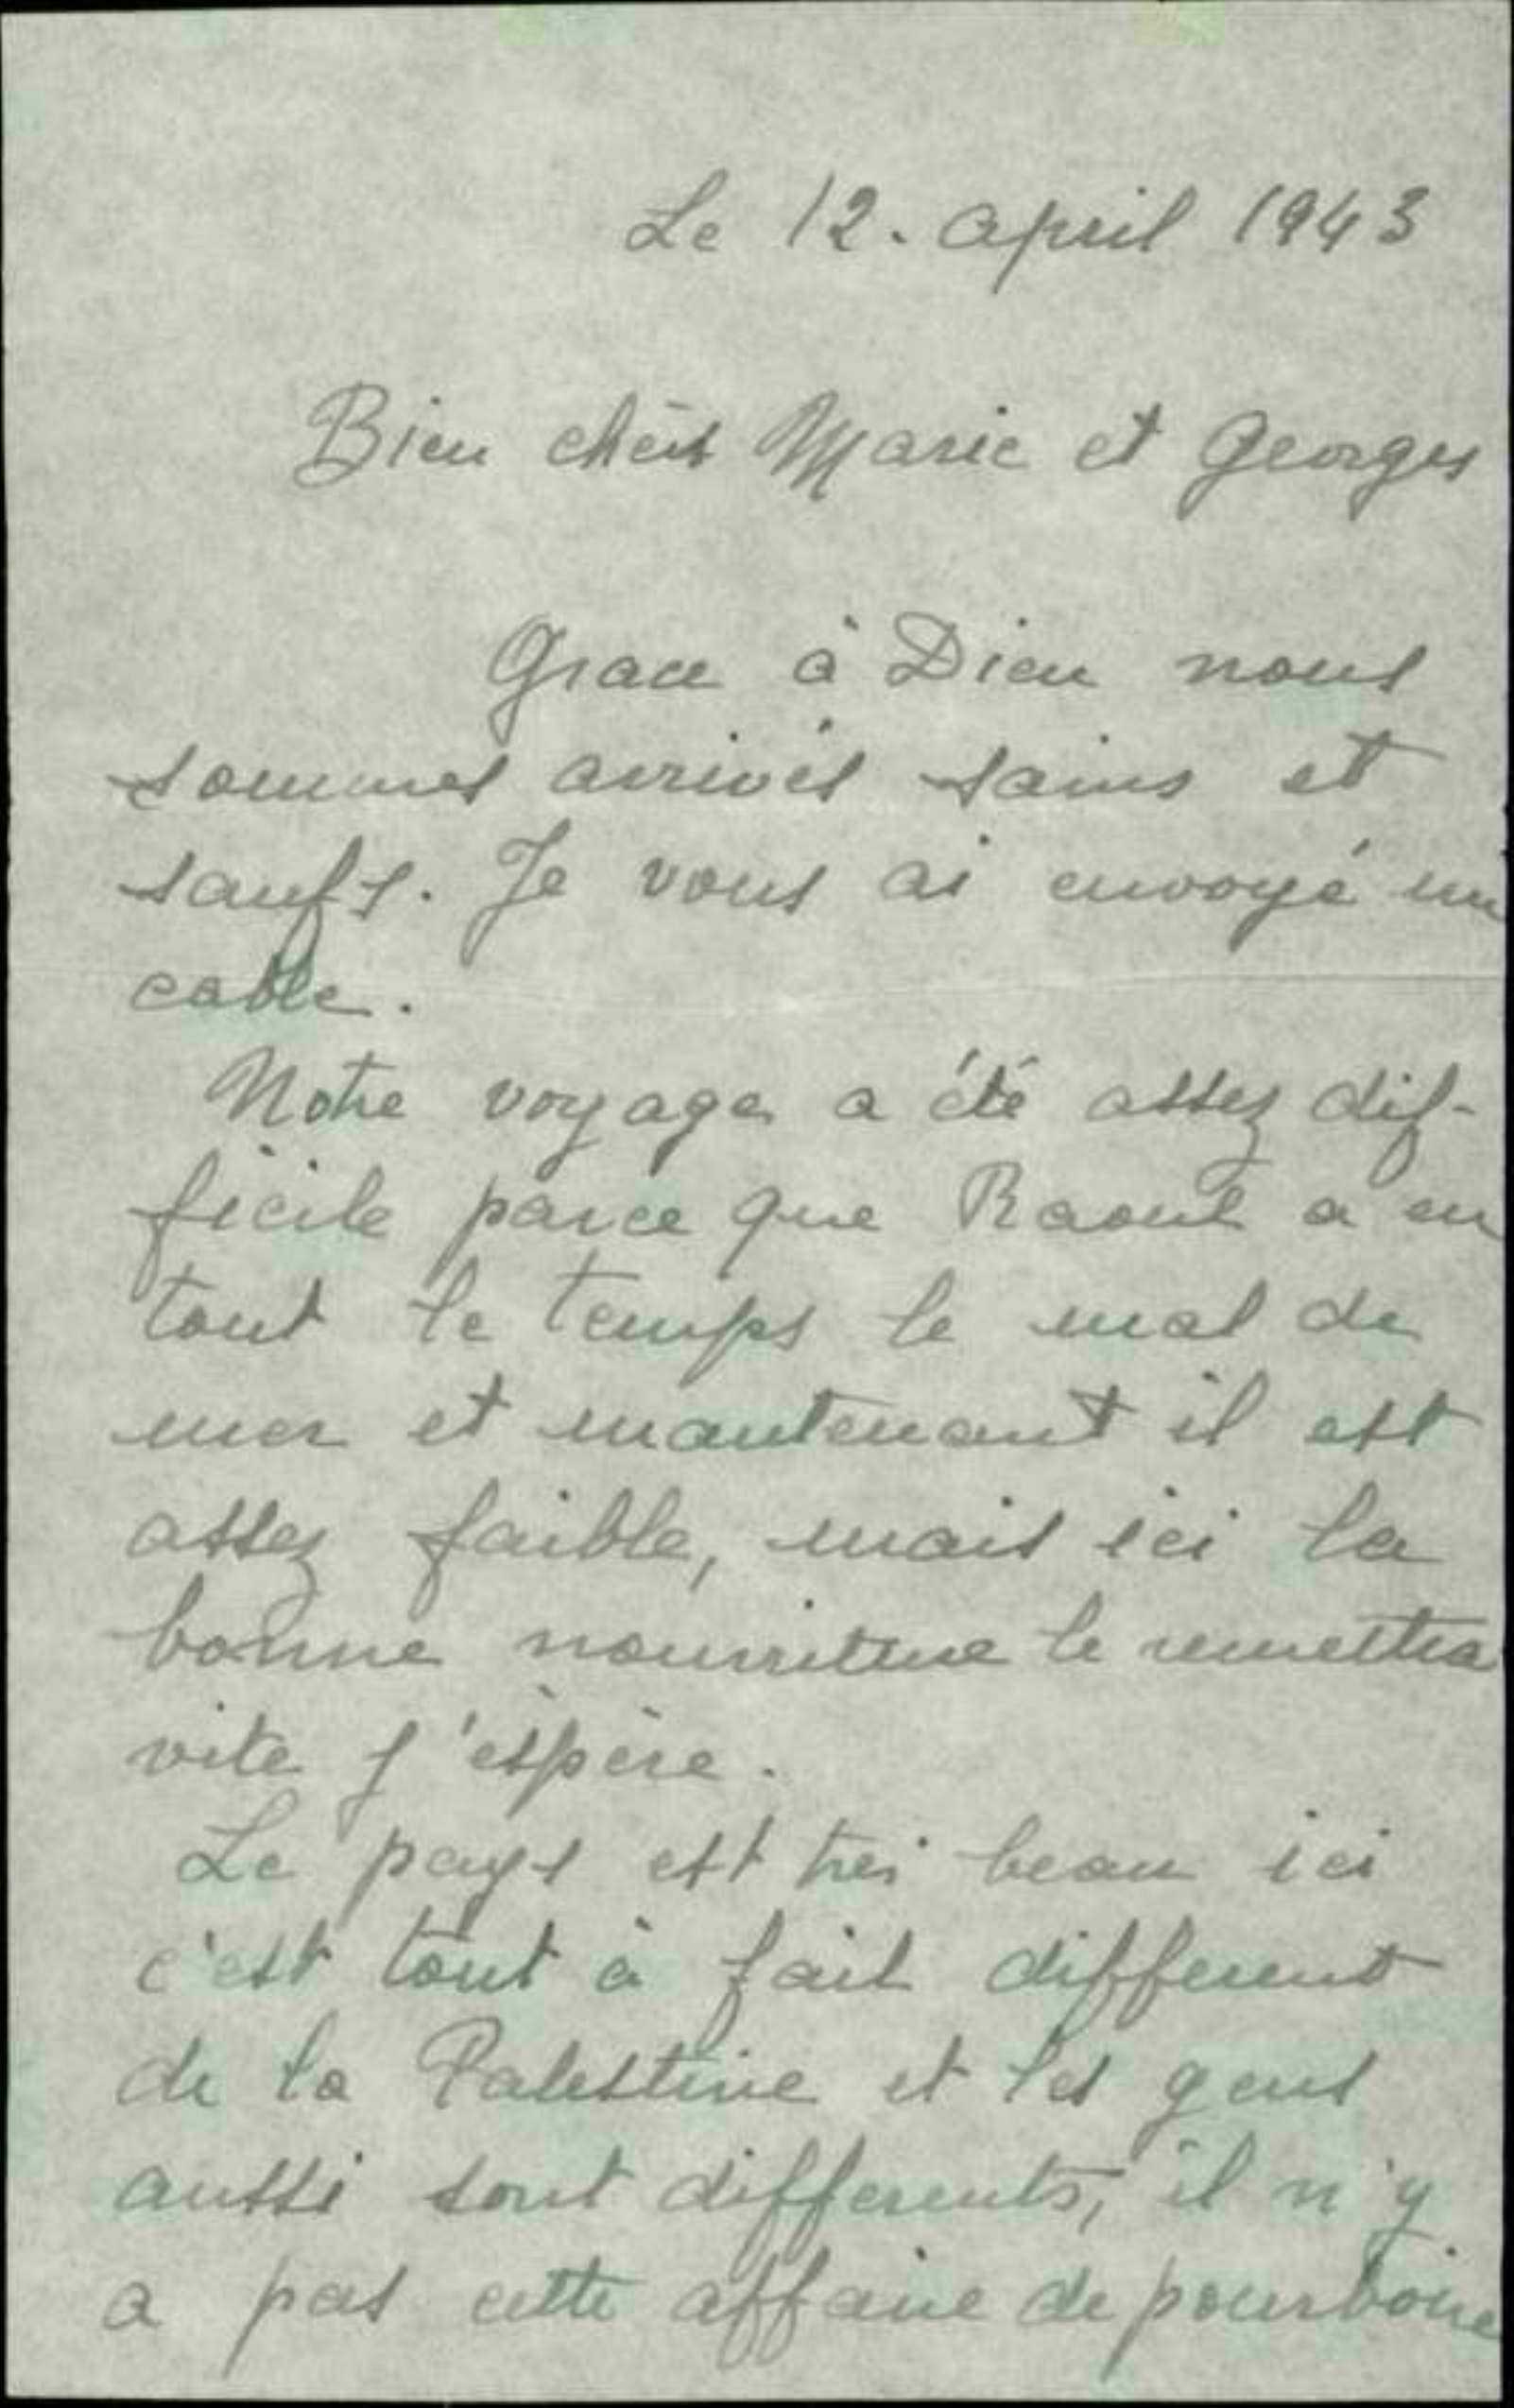 Le 12. April 1943
Bien chérs Marie et Georges
Grace à Dieu nous
sommes arrivés sains et
saufs. Je vous ai envoyé un
cable.
Notre voyage a été assez dif-
ficile parce que Raoul a eu
tout le temps le mal de
mer et mantenant il est
assez faible, mais ici la
bonne nourriture le remettra
vite j'éspère.
Le pays est très beau ici
c'est tout à fait different
de la Palestine et les gens
aussi sont differents, il n'y
a pas cette affaire de pourboire